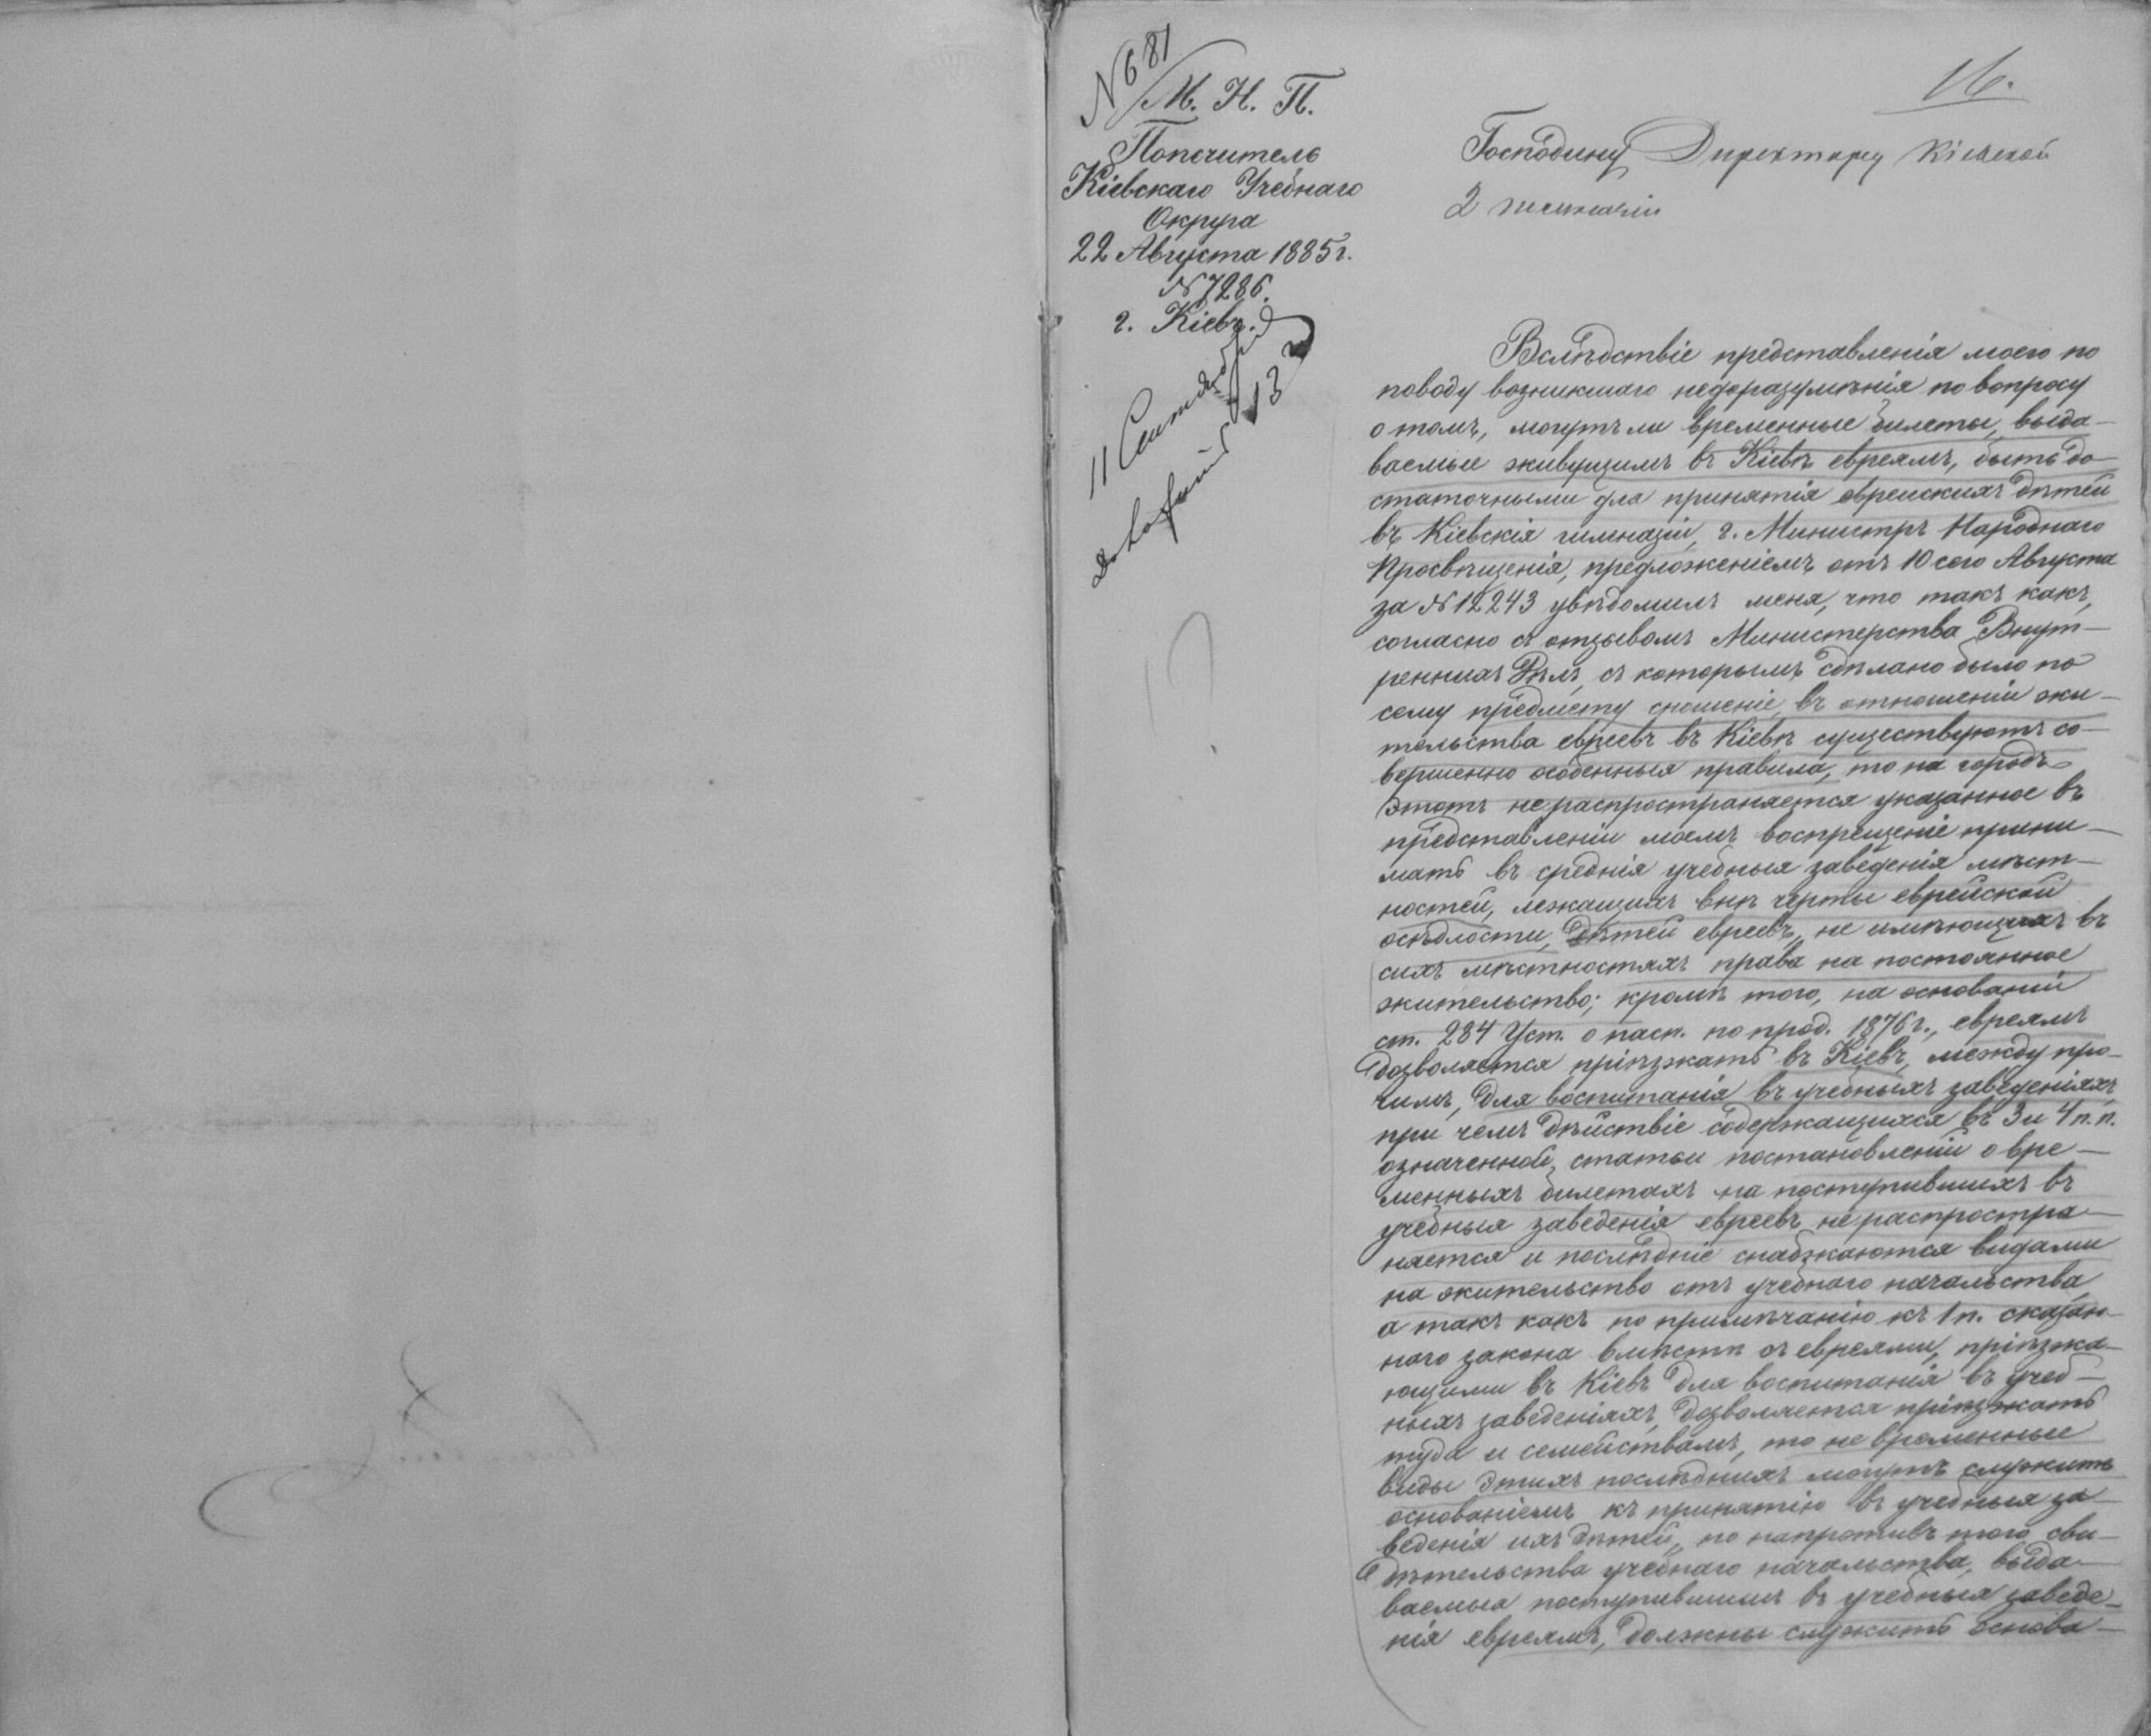 № 681
16.
М. Н. П.
Попечитель
Кіевскаго Учебнаго
Округа
22 Августа 1885 г.
№ 7286.
г. Кіевъ.
11 Сентября
13
Господину Директору Кіевской
2 гимназіи
Вслѣдствіе представленія моего по
поводу возникшаго недоразумѣнія по вопросу
о томъ, могутъ ли временные билеты, выда-
ваемые живущимъ въ Кіевѣ евреямъ, быть до-
статочными для принятія еврейскихъ дѣтей
въ Кіевскія гимназіи, г. Министръ Народнаго
Просвѣщенія, предложеніемъ отъ 10 сего Августа
за № 12243 увѣдомилъ меня, что такъ какъ,
согласно съ отзывомъ Министерства Внут-
реннихъ Дѣлъ, съ которымъ сдѣлано было по
сему предмету сношеніе, въ отношеніи жи-
тельства евреевъ въ Кіевѣ существуютъ со-
вершенно особенныя правила, то на городъ
этотъ не распространяется указанное въ
представленіи моемъ воспрещеніе прини-
мать въ среднія учебныя заведенія мѣст-
ностей, лежащихъ внѣ черты еврейской
осѣдлости, дѣтей евреевъ, не имѣющихъ въ
сихъ мѣстностяхъ права на постоянное
жительство; кромѣ того, на основаніи
ст. 284 Уст. о пасп. по прод. 1876 г., евреямъ
дозволяется пріѣзжать въ Кіевъ, между про-
чимъ, для воспитанія въ учебныхъ заведеніяхъ,
при чемъ дѣйствіе содержащихся въ 3 и 4 п.п.
означенной статьи постановленій о вре-
менныхъ билетахъ на поступившихъ въ
учебныя заведенія евреевъ не распростра-
няется и послѣдніе снабжаются видами
на жительство отъ учебнаго начальства,
а такъ какъ по примѣчанію къ 1 п. сказан-
наго закона вмѣстѣ съ евреями, пріѣзжа-
ющими въ Кіевъ для воспитанія въ учеб-
ныхъ заведеніяхъ, дозволяется пріѣзжать
туда и семействамъ, то не временные
виды этихъ послѣднихъ могутъ служить
основаніемъ къ принятію въ учебныя за-
веденія ихъ дѣтей, но напротивъ того сви-
дѣтельства учебнаго начальства, выда-
ваемыя поступившимъ въ учебныя заведе-
нія евреямъ, должны служить основа-